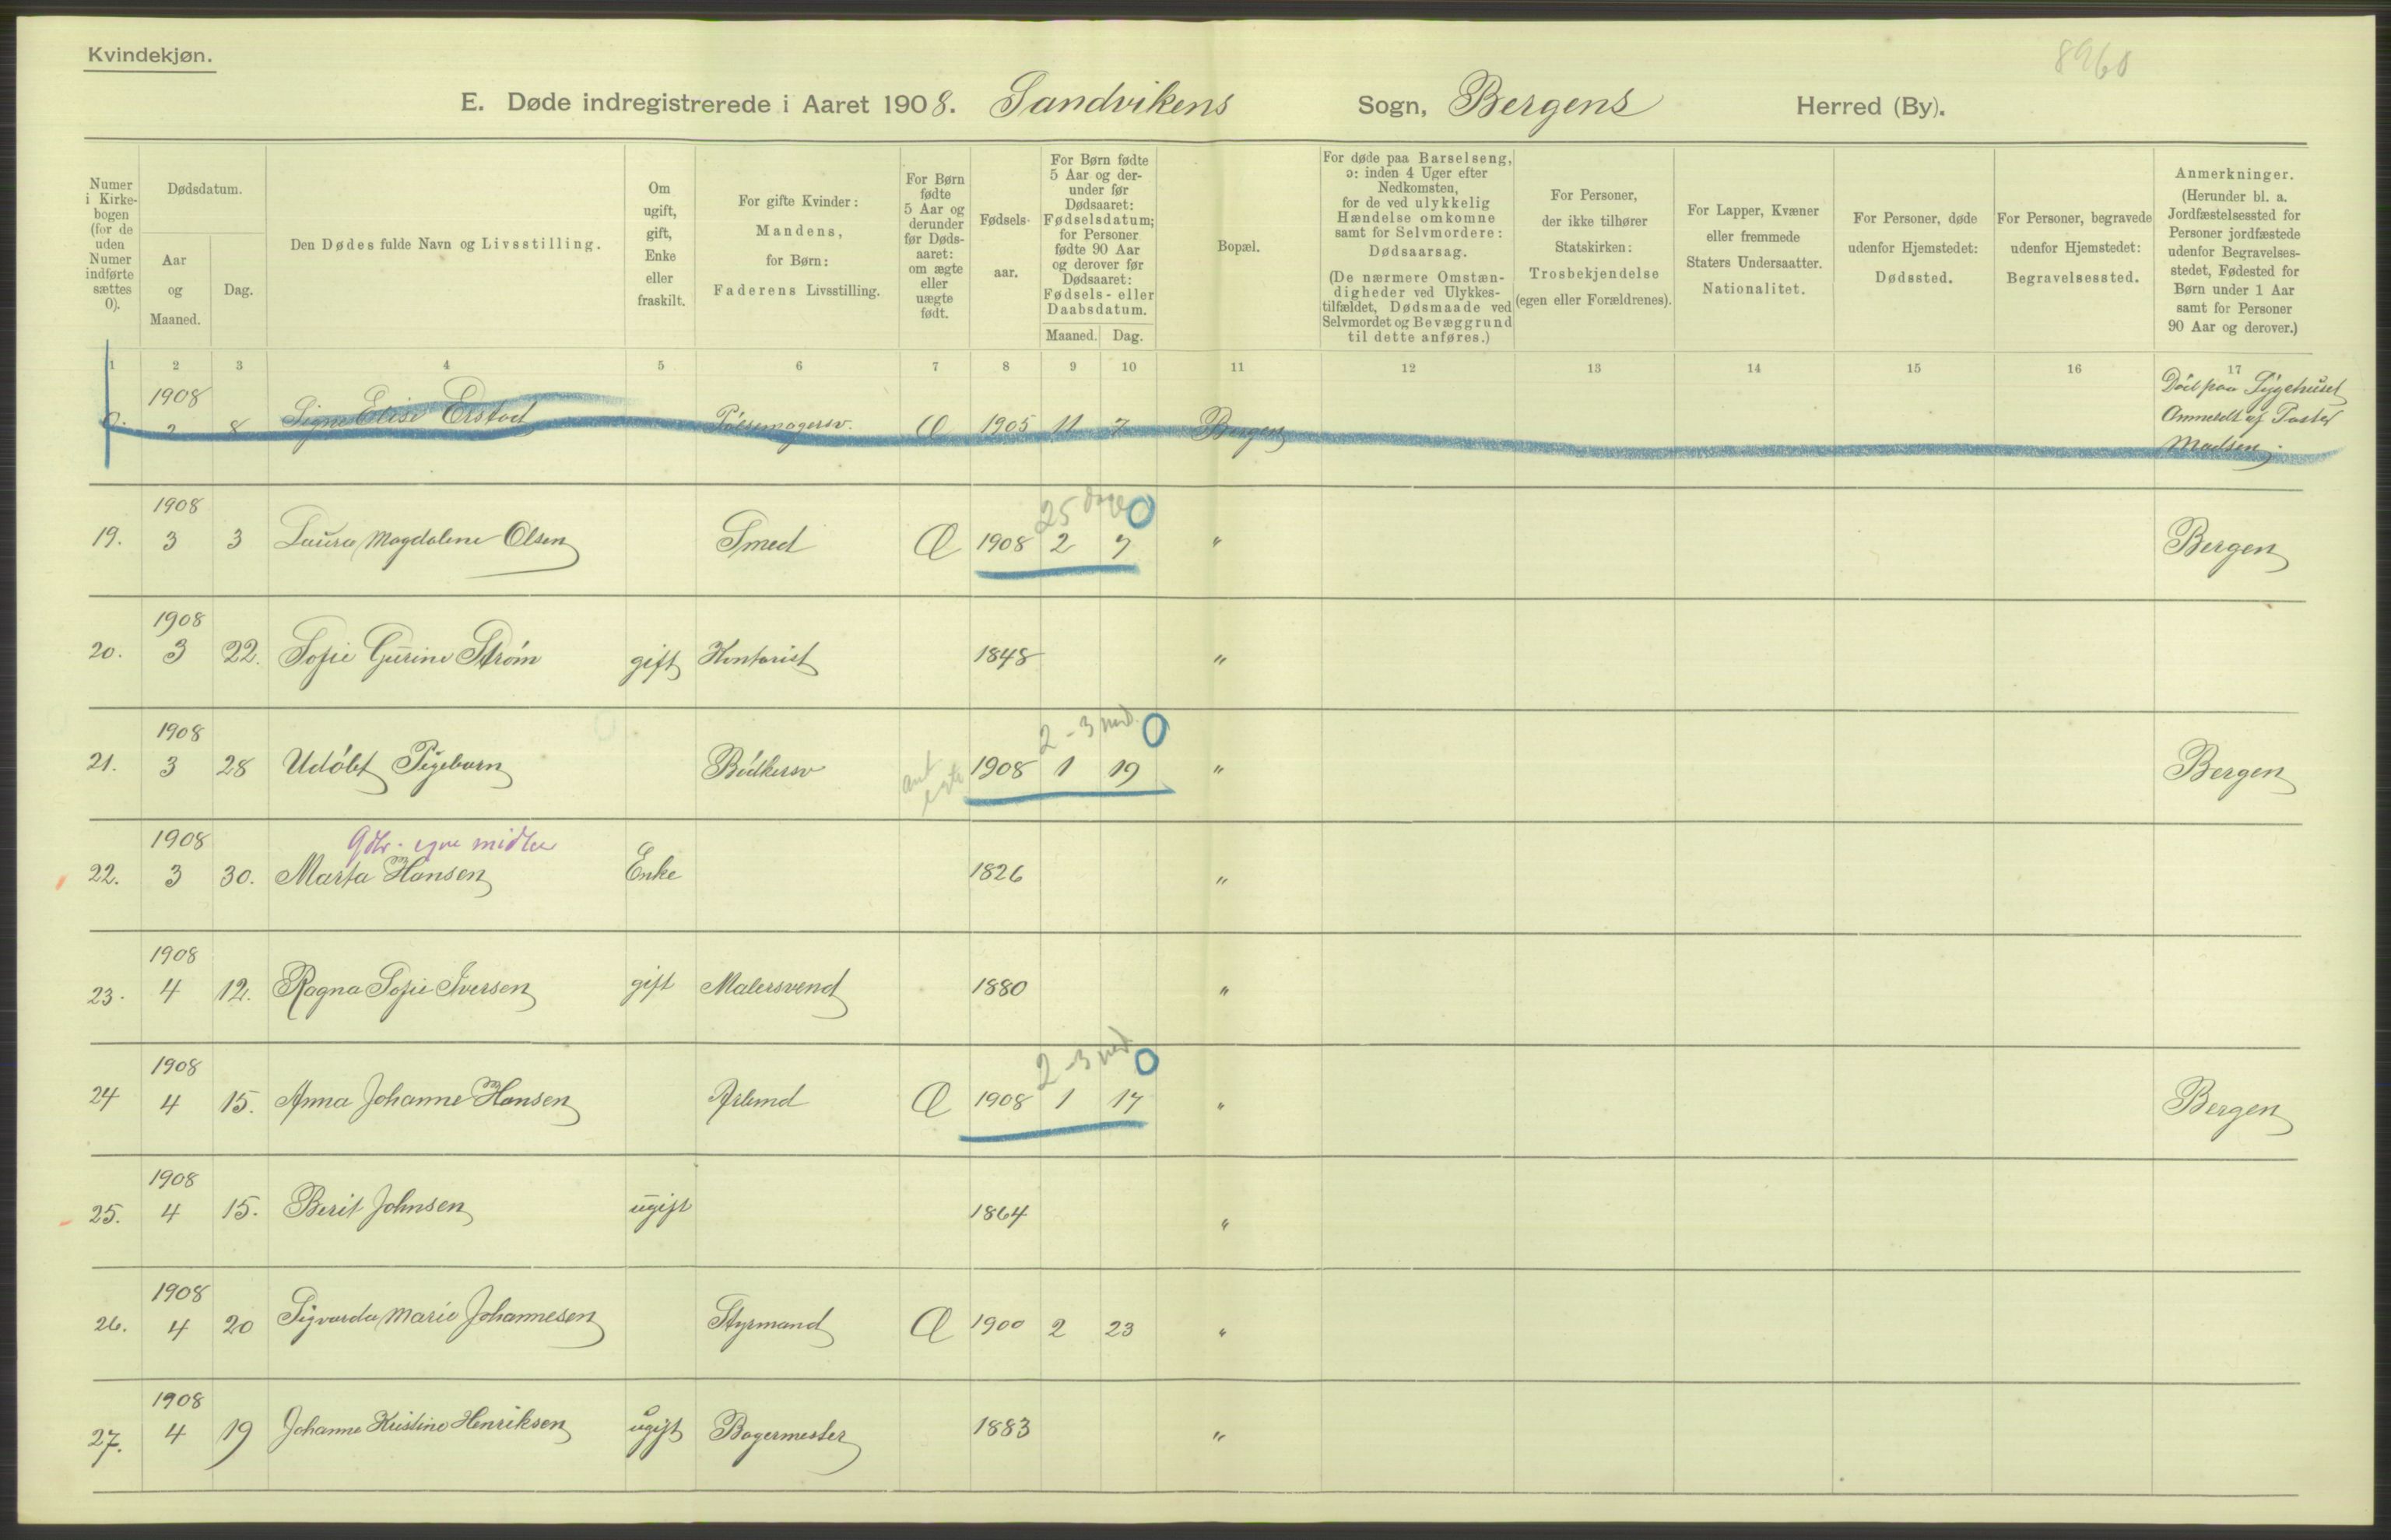 Kvindekjøn.
8960
E. Døde indregistrerede i Aaret 1908. Sandvikens Sogn, Bergens Herred (By).
Numer i Kirkebogen (for de uden Numer indførte sættes 0).
Dødsdatum.
Aar og Maaned.
Dag.
Den Dødes fulde Navn og Livsstilling.
Om ugift, gift, Enke eller fraskilt.
For gifte Kvinder: Mandens, for Børn: Faderens Livsstilling.
For Børn fødte 5 Aar og derunder før Dødsaaret: om ægte eller uægte født.
Fødselsaar.
For Børn fødte 5 Aar og derunder før Dødsaaret: Fødselsdatum; for Personer fødte 90 Aar og derover før Dødsaaret: Fødsels- eller Daabsdatum.
Maaned. Dag.
Bopæl.
For døde paa Barselseng, ɔ: inden 4 Uger efter Nedkomsten, for de ved ulykkelig Hændelse omkomne samt for Selvmordere: Dødsaarsag.
(De nærmere Omstændigheder ved Ulykkestilfældet, Dødsmaade ved Selvmordet og Bevæggrund til dette anføres.)
For Personer, der ikke tilhører Statskirken: Trosbekjendelse (egen eller Forældrenes).
For Lapper, Kvæner eller fremmede Staters Undersaatter. Nationalitet.
For Personer, døde udenfor Hjemstedet: Dødssted.
For Personer, begravede udenfor Hjemstedet: Begravelsessted.
Anmerkninger.
(Herunder bl. a. Jordfæstelsessted for Personer jordfæstede udenfor Begravelsesstedet, Fødested for Børn under 1 Aar samt for Personer 90 Aar og derover.)
1 2 3 4 5 6 7 8 9 10 11 12 13 14 15 16 17
0. 1908 2 8 Signe Elise Erstad Pølsemagersv. Æ 1905 11 7 Bergen Död paa Sygehuset
Anmeldt af Pastor
Madsen.
25 dage 0
19. 1908 3 3 Laura Magdalene Olsen Smed Æ 1908 2 7 " Bergen
20. 1908 3 22. Sofie Gurine Strøm gift Kontorist 1848 "
2-3 md. 0
21. 1908 3 28 Udöbt Pigebarn Bödkersv ant egte 1908 1 19 " Bergen
Gdr. egne midler
22. 1908 3 30. Marta Hansen Enke 1826 "
23. 1908 4 12. Ragna Sofie Iversen gift Malersvend 1880 "
2-3 md. 0
24 1908 4 15. Anna Johanne Hansen Arbmd Æ 1908 1 17 " Bergen
25. 1908 4 15. Berit Johnsen ugift 1864 "
26. 1908 4 20 Sigvarda Marie Johannesen Styrmand Æ 1900 2 23 "
27. 1908 4 19 Johanne Kristine Henriksen ugift Bagermester 1883 "